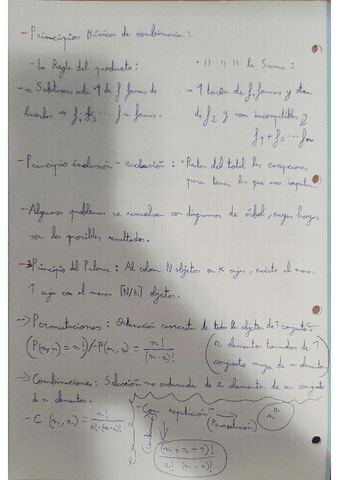 - Principios Básicos de combinatoria:
· La Regla del producto:
· " " " la Suma:
- n Subtareas cada 1 de f formas de
hacerlas ⇒ f₁·f₂ ··· fn formas.
- 1 tarea de f₁ formas y otra
de f₂ y son incompatibles
f₁+f₂ ··· fn
- Principio inclusión - exclusión: · Restar del total las excepciones
para tener los que nos importan.
- Algunos problemas se resuelven con diagramas de árbol, cuyas hojas
son los posibles resultados.
→ Principio del Palomar: Al colocar N objetos en K cajas, existe al menos
1 caja con al menos ⌈N/K⌉ objetos.
-> Permutaciones: Ordenación concreta de todos los objetos de 1 conjunto.
(P(n,n) = n!)/-P(n,r) = n!/(n-r)!
r elementos tomados de 1
conjunto mayor de n elementos
-> Combinaciones: Selección no ordenada de r elementos de un conjunto
de n elementos.
- C(n,r) = n!/r!·(n-r)!
- Con repetición
(Permutación)
n^r
(n+r-1)!/r!·(n-1)!